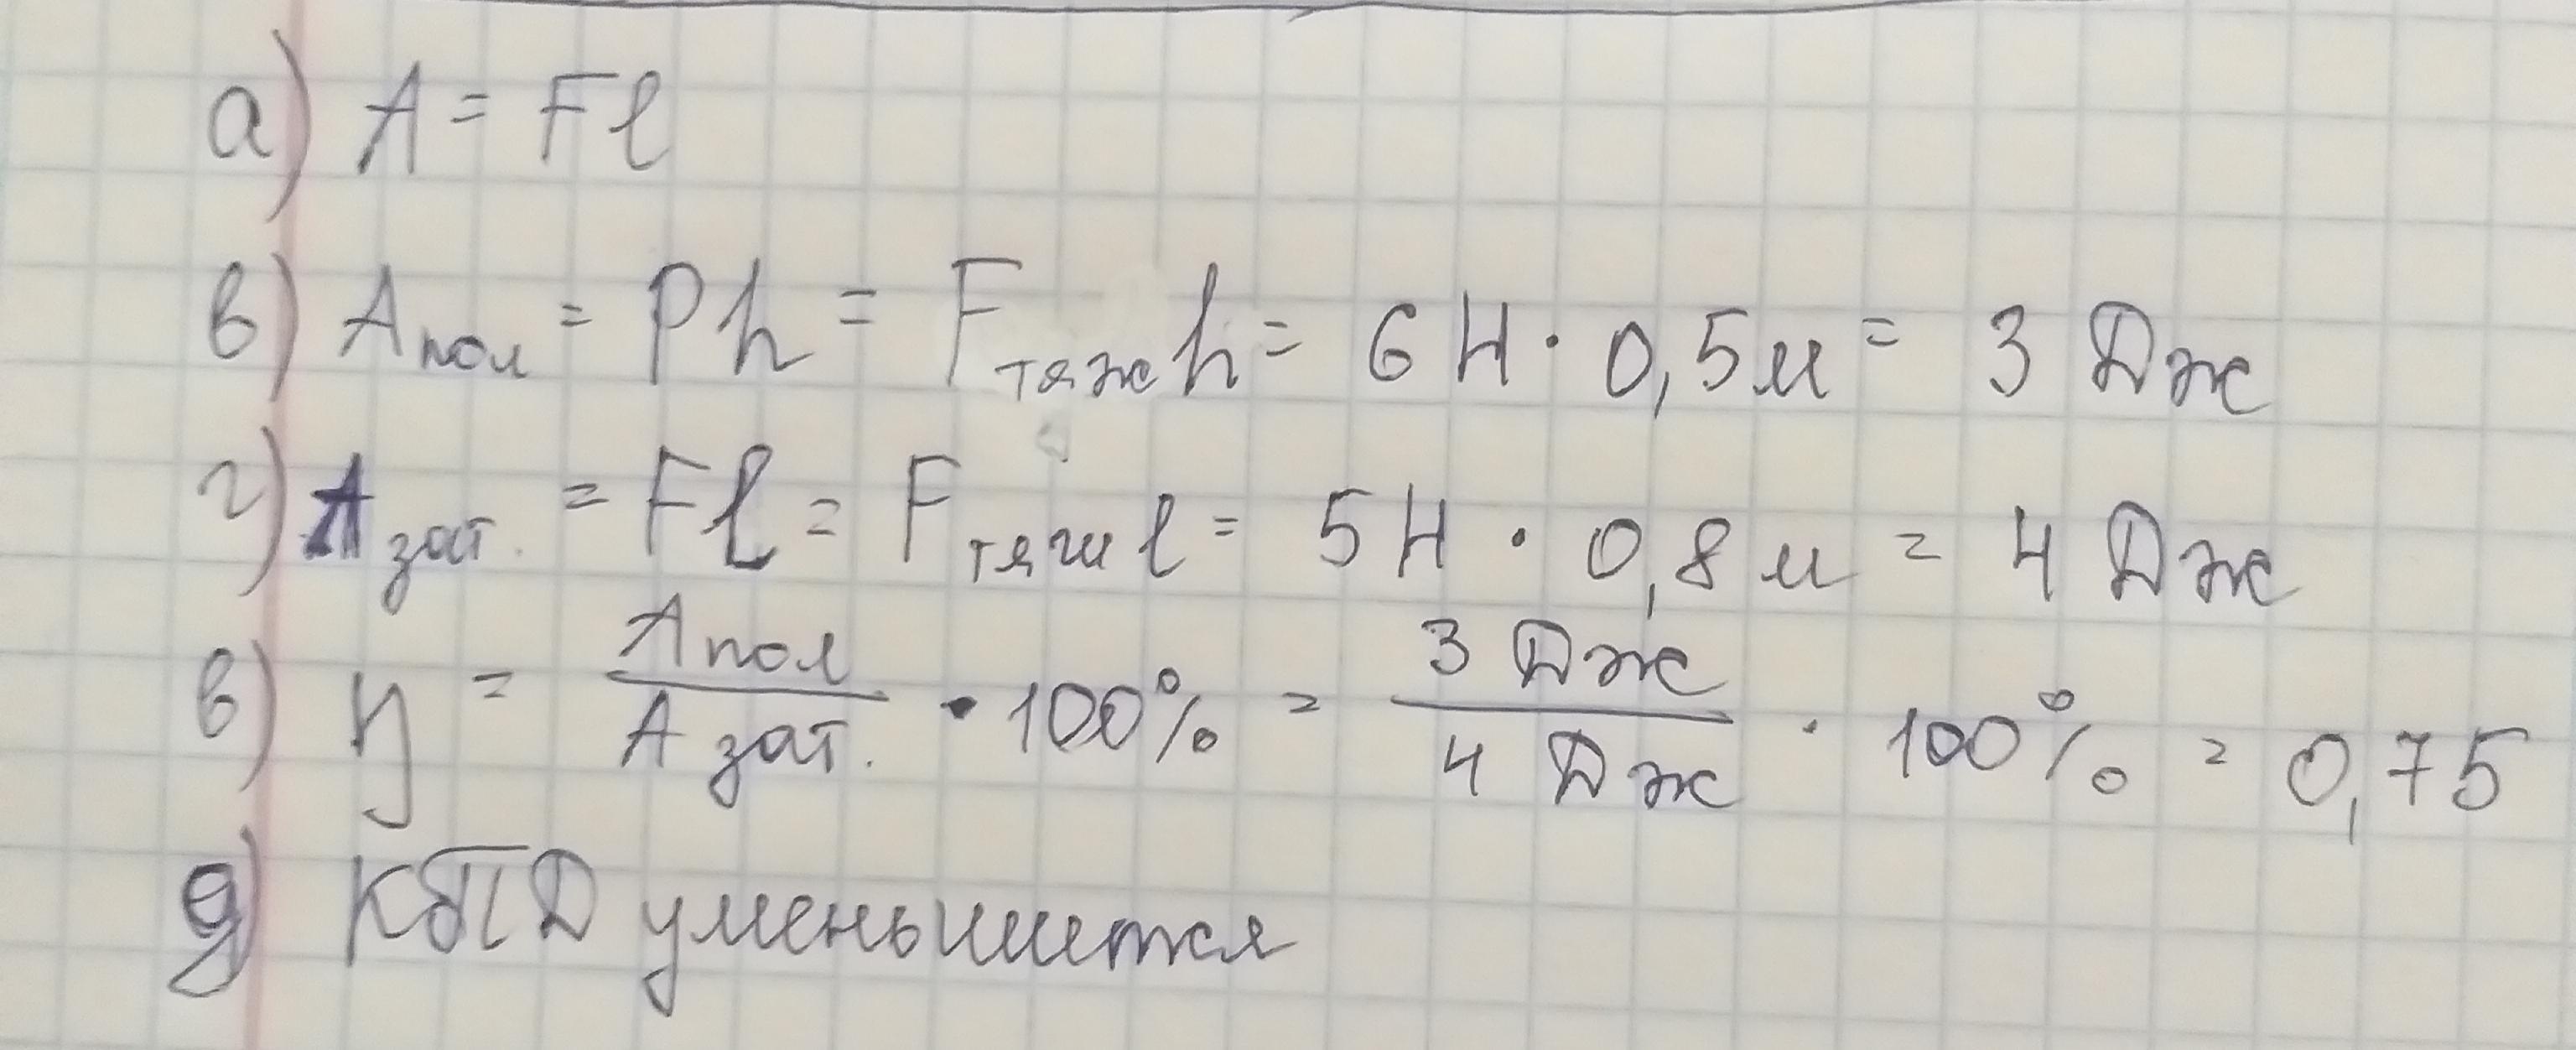 а) A = Fl
в) Aпол = Ph = Fтяж h = 6 Н · 0,5 м = 3 Дж
г) Aзат. = Fl = Fтяги l = 5 Н · 0,8 м = 4 Дж
в) η = Aпол / Aзат. · 100% = 3 Дж / 4 Дж · 100% = 0,75
д) КПД уменьшится